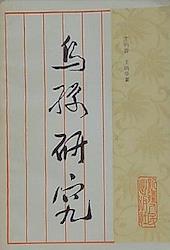 乌孙研究
王明哲 王炳华 著
新疆人民
出版社